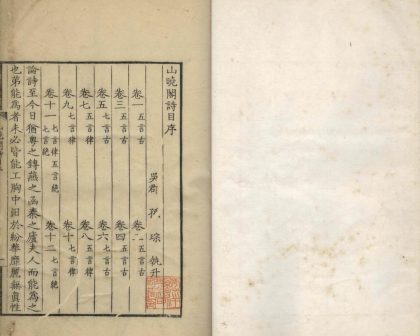 山曉閣詩目序
吳郡 孫 琮 執升
卷一 五言古 卷二 五言古
卷三 五言古 卷四 五言古
卷五 七言古 卷六 七言古
卷七 五言律 卷八 五言律
卷九 七言律 卷十 七言律
卷十一 七言律 五言絶 七言絶 卷十二 七言絶
論詩至今日猶粵之鎛燕之函秦之廬夫人而能為之
也第能為者未必皆能工胸中汩於紛華靡麗無真性